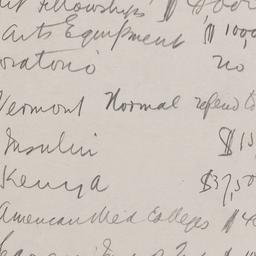 Fellowships $
Arts Equipment $ 10,0
oratorio no
Vermont Normal refend to
Insulin $15
Kenya $37,50
American Med Colleges $4